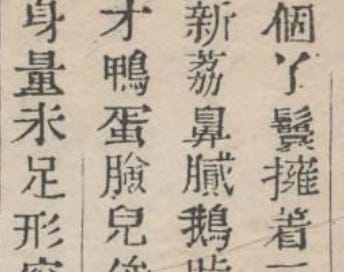 個丫鬟擁着
新荔鼻膩鵝
才鴨蛋臉兒
身量未足形